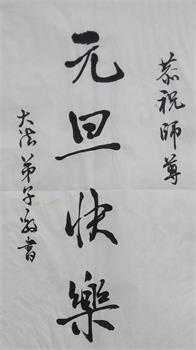 恭祝師尊
元旦快樂
大法弟子敬書